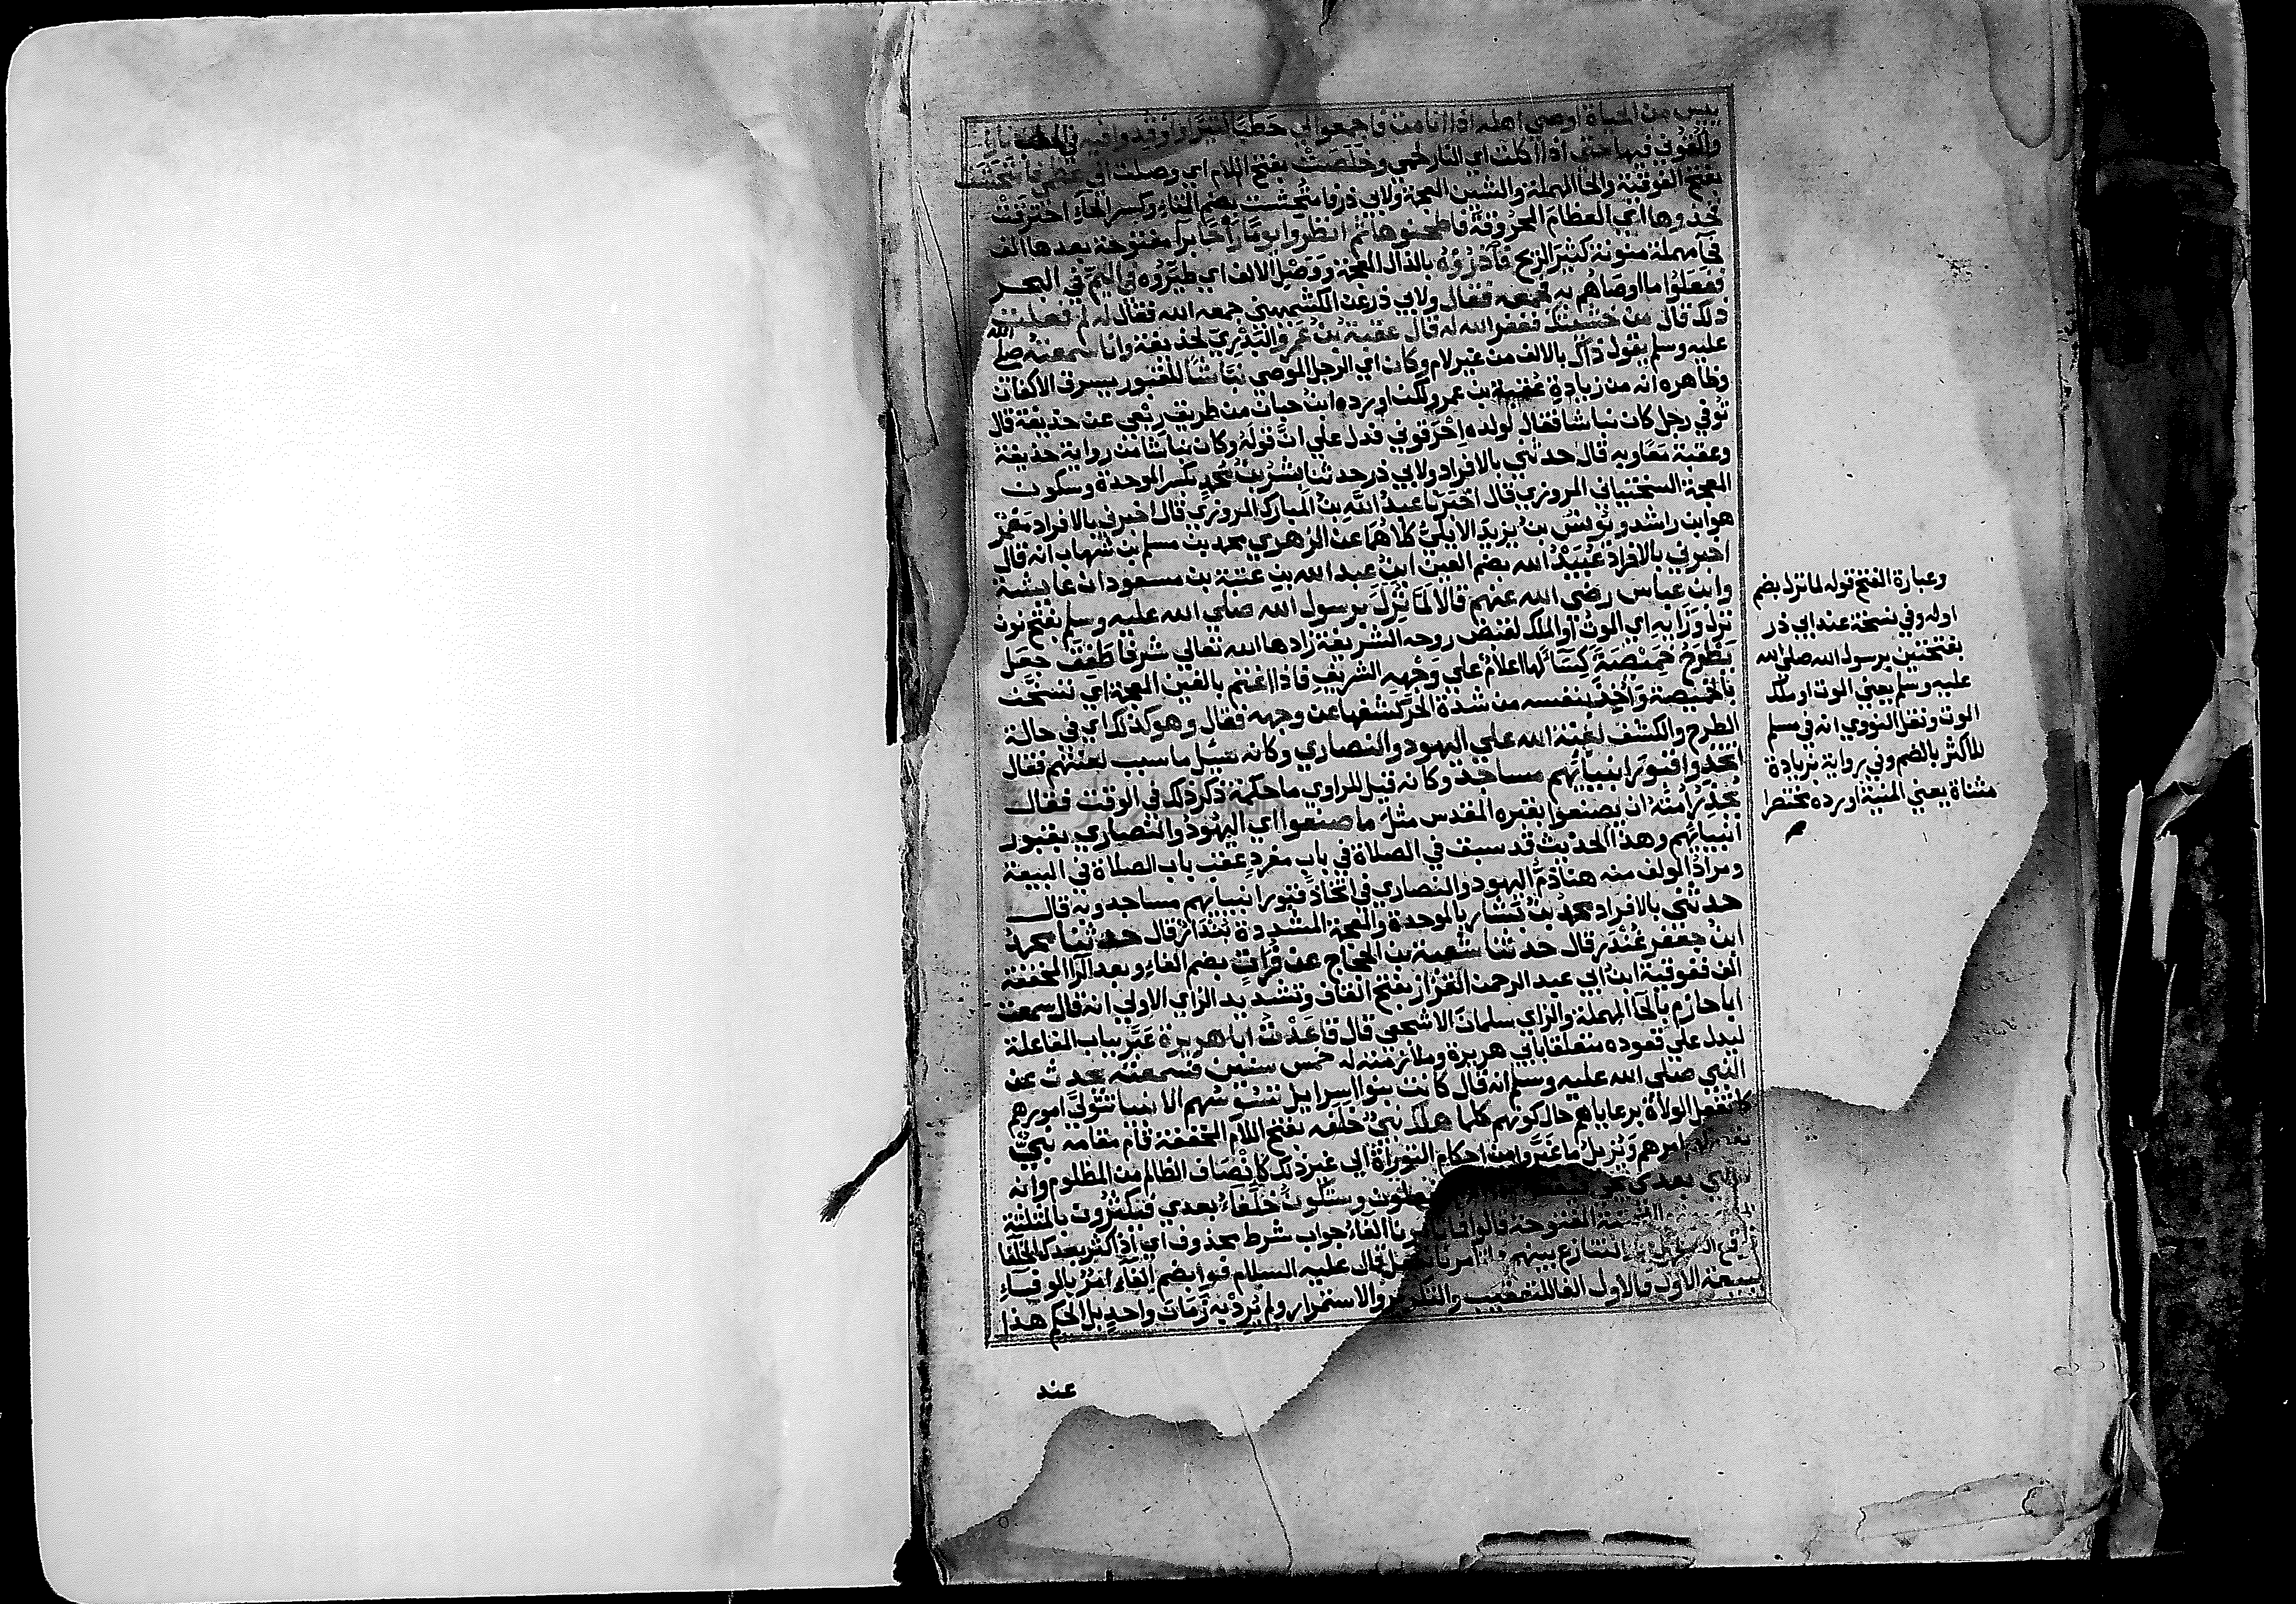 ييس من الحياة اوصي اهله اذا انا مت فاجمعوا لي حطبا كثيرا واوقدوا فيه في الحطب نارا
والقوني فيها حتى اذا اكلت اي النار لحمي وخلصت بفتح اللام اي وصلت الي عظمي فامتحشت
بفتح الفوقية والحا المهملة والشين المعجمة ولابي ذر فامتحشت بضم التاء وكسر الحاء احترقت
خذوها اي العظام المحروقة فاطحنوها ثم انظروا يوما راحا برا مفتوحة بعدها الف
فحا مهملة منونة كثير الريح فاذروه بالذال المعجمة ووصل الالف اي طيروه في اليم في البحر
ففعلوا ما اوصاهم به فجمعه فقال ولابي ذر عن الكشميهني جمعه الله فقال له لم فعلت
ذلك قال من خشيتك فغفر الله له قال عقبة بن عمرو البدري لحذيفة وانا سمعته صلى الله
عليه وسلم يقول ذاك بالالف من غير لام وكان اي الرجل الموصي نباشا للقبور يسرق الاكفان
وظاهره انه من زيادة عقبة بن عمرو لكن اورده ابن حبان من طريق ربعي عن حذيفة قال
توفي رجل كان نباشا فقال لولده احرقوني فدل علي ان قوله وكان نباشا من رواية حذيفة
وعقبة معا وبه قال حدثني بالافراد ولابي ذر حدثنا بشر بن محمد بكسر الموحدة وسكون
المعجمة السختياني المروزي قال اخبرنا عبد الله بن المبارك المروزي قال اخبرني بالافراد معمر
هو ابن راشد ويونس بن يزيد الايلي كلاهما عن الزهري محمد بن مسلم بن شهاب انه قال
اخبرني بالافراد عبيد الله بضم العين ابن عبد الله بن عتبة بن مسعود ان عايشة
وابن عباس رضي الله عنهم قالا لما نزل برسول الله صلي الله عليه وسلم بفتح نون
نزل وزايه اي الموت او الملك لقبض روحه الشريفة زادها الله تعالي شرفا طفق جعل
يطرح خميصة كساء لها اعلام علي وجهه الشريف فاذا اغتم بالغين المعجمة اي تسخن
بالخميصة واخذ بنفسه من شدة الحر كشفها عن وجهه فقال وهو كذلك اي في حالة
الطرح والكشف لعنة الله علي اليهود والنصاري وكانه سئل ما سبب لعنتهم فقال
اتخذوا قبور انبيائهم مساجد وكانه قيل للراوي ما حكمة ذكر ذلك في الوقت فقال
يحذر امته ان يصنعوا بقبره المقدس مثل ما صنعوا اي اليهود والنصاري بقبور
انبيائهم وهذا الحديث قد سبق في الصلاة في باب مفرد عقب باب الصلاة في البيعة
ومراد المولف منه هنا ذم اليهود والنصاري في اتخاذ قبور انبيائهم مساجد وبه قال
حدثني بالافراد محمد بن بشار بالموحدة والمعجمة المشددة بندار قال حدثنا محمد
ابن جعفر غندر قال حدثنا شعبة بن الحجاج عن فرات بضم الفاء وبعد الرا المخففة
الف ففوقية ابن ابي عبد الرحمن القزاز بفتح القاف وتشديد الزاي الاولي انه قال سمعت
ابا حازم بالحا المهملة والزاي سلمان الاشجعي قال قاعدت ابا هريرة عبر بباب المفاعلة
ليدل علي قعوده متعلقا بابي هريرة وملازمته له خمس سنين فسمعته يحدث عن
النبي صلي الله عليه وسلم انه قال كانت بنوا اسرايل تسوسهم الانبيا تتولي امورهم
كما تفعل الولاة برعاياهم حال كونهم كلما هلك نبي خلفه بفتح اللام المخففة قام مقامه نبي
امرهم ويزيل ما غيروا من احكام التوراة الي غير ذلك كانصاف الظالم من المظلوم وانه
نبي بعدي وستكون خلفاء بعدي فيكثرون بالمثلثة
المفتوحة قالوا فما تامرنا الفاء جواب شرط محذوف اي اذا كثر بعدك الخلفا
التنازع بينهم فما تامرنا نفعل قال عليه السلام فوا بضم الفاء امر بالوفاء
ببيعة الاول فالاول الفا للتعقيب والتكرير والاستمرار ولم يرد به زمان واحد بل الحكم هذا
عند
وعبارة الفتح قوله لما نزل بضم
اوله وفي نسخة عند ابي ذر
بفتحتين برسول الله صلى الله
عليه وسلم يعني الموت او ملك
الموت ونقل النووي انه في مسلم
للاكثر بالضم وفي رواية بزيادة
مثناة يعني المنية اورده مختصرا